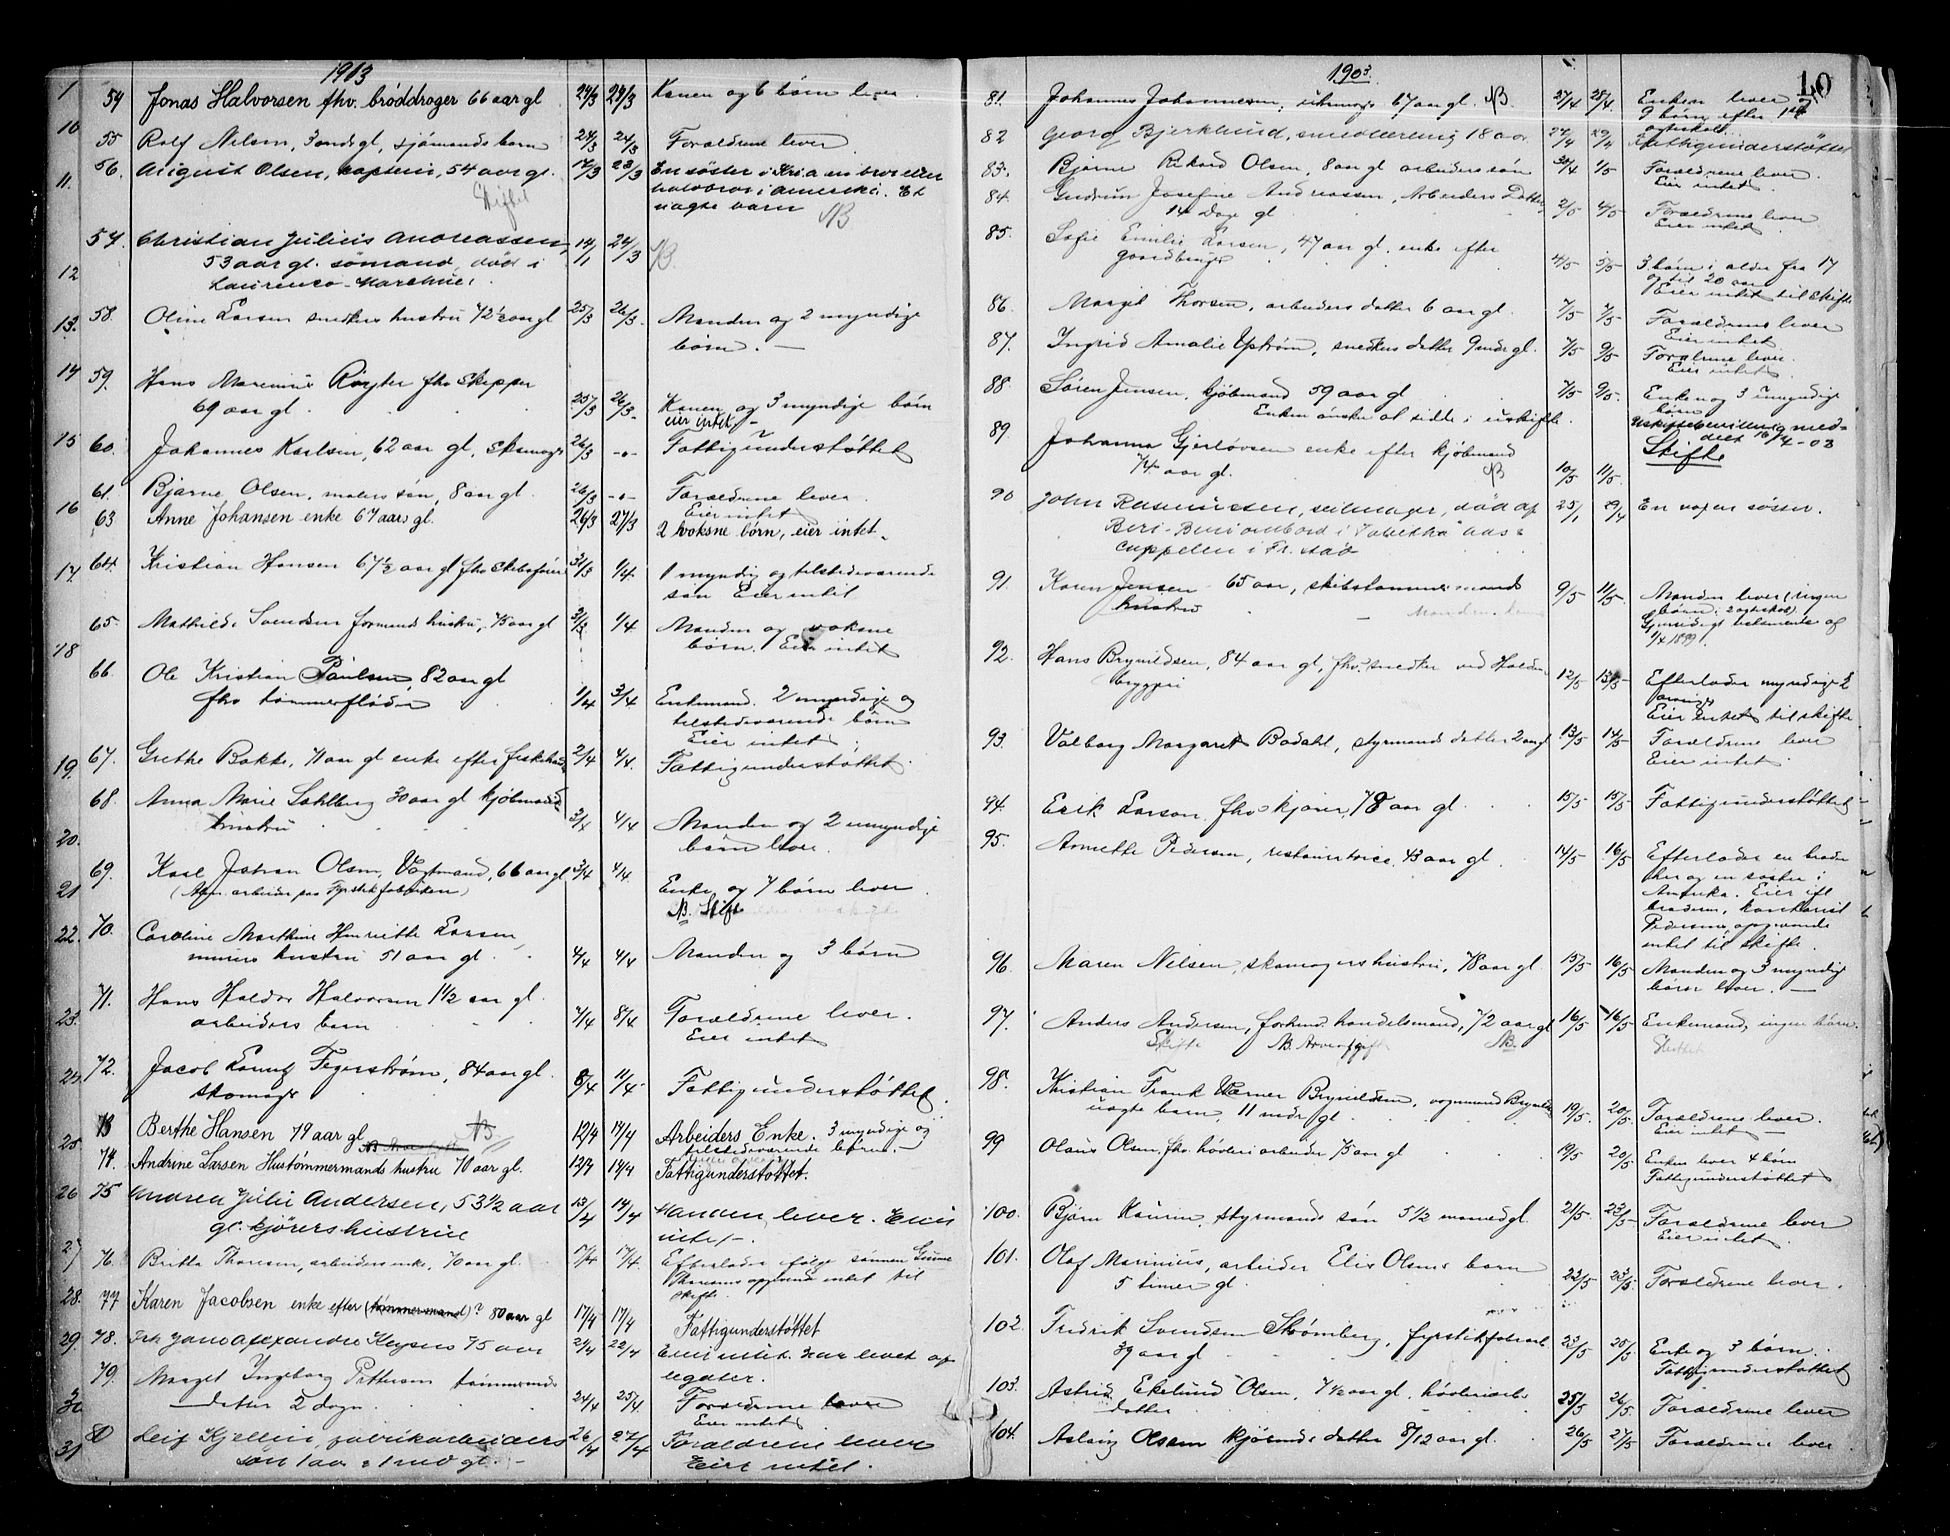 1903
1 54 Jonas Halvorsen fhv. brøddrager 66 aar gl 24/3 29/3 Konen og 6 børn lever
10 55 Rolf Nilsen, 3 mdr gl, sjømands barn 24/3 24/3 Forældrene lever
56. August Olsen, kaptein, 54 aar gl. 17/3 23/3 En søster i Kr.a en bror eller
11. halvbror i Amerika. Et
Skiftet uægte barn NB
57. Christian Julius Andreassen, 14/1 24/3 NB.
53 aar gl. sømand, død i
12 Laurenco-Marehue.
13. 58. Oline Larsen snedkers hustru 72½ aar gl 25/3 26/3. Manden og 2 myndige
børn. —
14 59. Hans Marinius Røyter fhv Skipper
69 aar gl. 25/3 26/3. Konen og 3 myndige børn
eier intet, -
15 60. Johannes Karlsen, 62 aar gl, Skomager 26/3 -o- Fattigunderstøttet
61. Bjarne Olsen, malers søn, 8 aar gl. 26/3 -o- Forældrene lever.
16 Eier intet
63 Anne Johansen enke 67 aar gl. 26/3 27/3 2 voksne børn, eier intet.
17. 64. Kristian Hansen 67½ aar gl fhv Skibsfører 31/3 1/4. 1 myndig og tilstedeværende
søn Eier intet
65. Mathilde Svendsen formands hustru, 75 aar gl 31/3 1/4. Manden og voksne
18 børn. Eier intet
66. Ole Kristian Paulsen, 82 aar gl
fhv tømmerfløder 1/4 3/4 Enkemand. 2 myndige og
tilstedeværende børn
Eier intet.
19. 67. Grethe Bakke, 71 aar gl enke efter 2/4 4/4. Fattigunderstøttet.
68. Anna Marie Sahlberg 30 aar gl kjøbmands
20. hustru 3/4 4/4 Manden og 2 umyndige
børn lever.
69. Karl Johan Olsen, Vagtmand, 66 aar gl 3/4 4/4.
21 (Alm. arbeider paa Fyrstikfabrikken) Enke og 7 børn lever
NB. Skifte
22. 70. Caroline Marthine Henriette Larsen
murers hustru 51 aar gl. 4/4 4/4 Manden og 3 børn
71. Hans Haldor Halvorsen 1½ aar gl.
23. arbeiders barn 7/4 8/4 Forældrene lever.
Eier intet
24. 72. Jacob Fegerstrøm, 84 aar gl.
skomager 8/4 11/4 Fattigunderstøttet.
73 Berthe Hansen 79 aar gl NB 12/4 14/4 Arbeiders Enke. 3 myndige og
25. tilstedeværende børn. -
74. Andrine Larsen Hustømmermands hustru 70 aar gl. 12/4 14/4 Fattigunderstøttet.
26 75 Andrea Julie Andersen, 53½ aar 13/4 14/4 Manden lever. Eier
gl. kjørers hustru intet -.
27 76. Britta Thoresen, arbeiders enke, 70 aar gl. 17/4. Efterlader ifølge sønnen
Thoresens opgivende intet til
skifte.
28. 77 Karen Jacobsen enke efter (tømmermand)? 80 aar gl 17/4 17/4 Fattigunderstøttet
29. 78. Alexandra 75 aar 21/4 22/4 Eier intet. Har levet af
legater.
79. Margit Ingeborg Pettersen tømmermands
30 datter 2 dogn 24/4 25/4. Forældrene lever
Eier intet
80 Leif Kjellin, fabrikarbeiders 26/4 27/4 Forældrene lever
31 søn 1 aar 1 md gl. Eier intet.
1903. 10
81. Johannes Johannesen, urmager 67 aar gl. NB. 27/4 28/4. Enken lever
9 børn efter 1ste
ægteskab.
82 Georg Bjerklund, smedlærling 18 aar 27/4 29/4 Fattigunderstøttet
83. Bjarne Rikard Olsen, 8 aar gl arbeiders søn 30/4 1/5 Forældrene lever.
Eier intet.
84. Gudrun Josefine Andreassen, Arbeiders Datter
14 Dage gl 2/5 4/5 Forældrene lever
Eier intet.
85. Sofie Emilie Larsen, 47 aar gl. enke efter
gaardbruger 4/5 5/5 3 børn i alder fra 17
og til 20 aar
Eier intet til Skifte
86. Margit Thorsen, arbeiders datter 6 aar gl. 7/5 7/5 Forældrene lever
Eier intet.
87. Ingrid Amalie Upstrøm, snedkers datter 9 mdr gl. 7/5 9/5 Forældrene lever.
Eier intet.
88 Søren Jensen, kjøbmand 59 aar gl 7/5 9/5. Enke og 3 umyndige
børn
Enken ønsker at sidde i uskifte. Uskiftebevilling med-
delt 16/4-03
89 Johanna Gjerløvsen enke efter kjøbmand
74 aar gl. NB 10/5 11/5. Skifte
90 John Rasmussen, seilmager, død af 25/1 29/4 En voxen søster.
Beri-Beri ombord i "Tabetha" Aas &
Cappelen i Fr.stad
91. Karen Jensen 65 aar, skibstømmermands
hustru 9/5 11/5. Manden lever (ingen
børn i ægteskab)
Gjensidigt testamente af
1/4 1899.
92. Hans Brynildsen, 84 aar gl, fhv. smedker ved Halden
bryggeri 12/5 13/5 Efterlader myndige
Eier intet til skifte
93. Valborg Margaret Bodahl, styrmands datter 2 aar gl 13/5 14/5 Forældrene lever
Eier intet.
94. Erik Larson fhv kjører, 78 aar gl. 15/5 15/5 Fattigunderstøttet
95. Annette Pedersen, restauratrice 43 aar gl. 14/5 16/5 Efterlader en broder
her og en søster i
Amerika. Eier ifl
broderen, kontorist
Pedersens opgivende
intet til skifte.
96. Maren Nilsen, skomagers hustru, 78 aar gl 15/5 16/5 Manden og 3 myndige
børn lever. —
97. Anders Andersen, forhenv. handelsmand, 72 aar gl 16/5 16/5 Enkemand, ingen børn.
Skifte NB. Arveafgift NB.
98. Kristian Frank Werner Brynildsen, vognmand
uægte barn, 11 mdr gl. 19/5 20/5 Forældrene lever.
Eier intet —
99 Olaus Olsen, fhv. høvleriarbeider 75 aar gl 19/5 20/5 Enken lever 4 børn
Fattigunderstøttet
100. Bjørn Kaurin, styrmands søn 5½ maaned gl. 21/5. 23/5 Forældrene lever
Eier intet.
101. Olaf Marinius, arbeider Olsens barn
5 timer gl 22/5 23/5. Forældrene lever.
102. Fredrik Svendsen Strømberg, fyrstikfabrik
39 aar gl 23/5 25/5 Enke og 3 børn.
Fattigunderstøttet
103. Astrid Ekelund Olsen, 7½ aar gl. høvleriarb.
datter 25/5 26/5. Forældrene lever
104. Aslaug Olsen kjørends datter 8/12 aar gl. 26/5 27/5 Forældrene lever